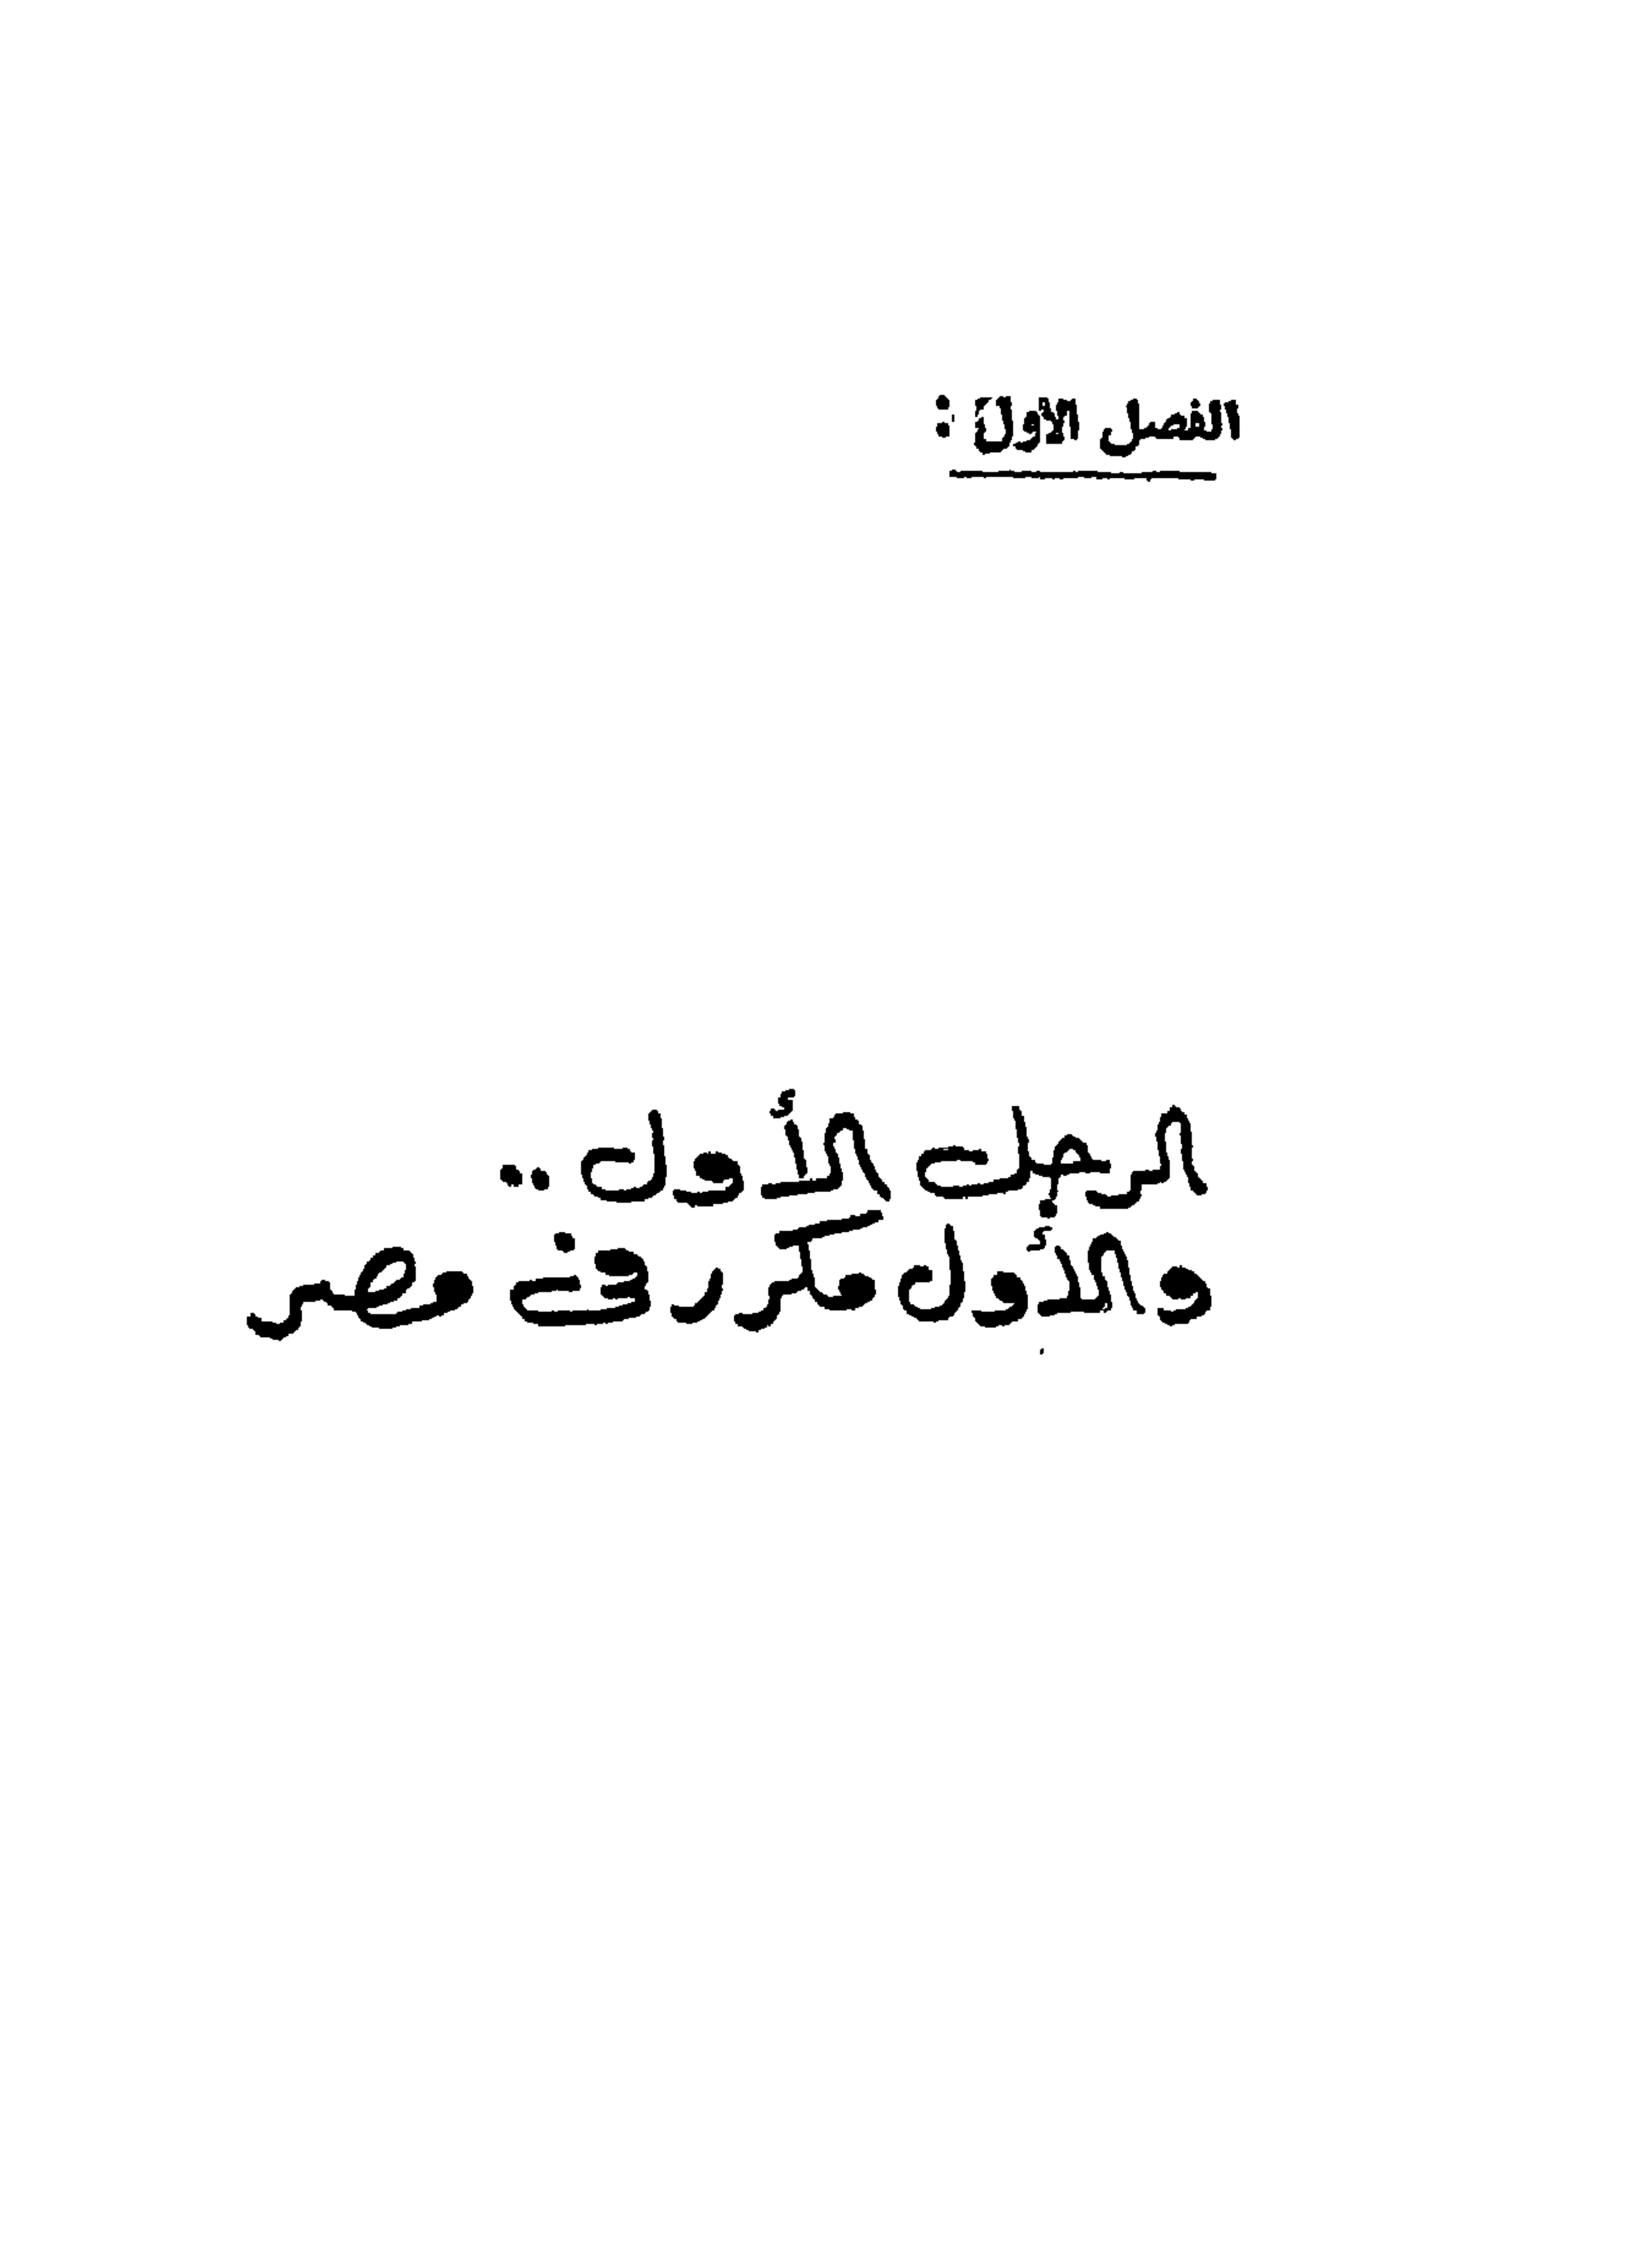 الفصل الأول :
الرجل الأول ..
والأول مكرر فى مصر